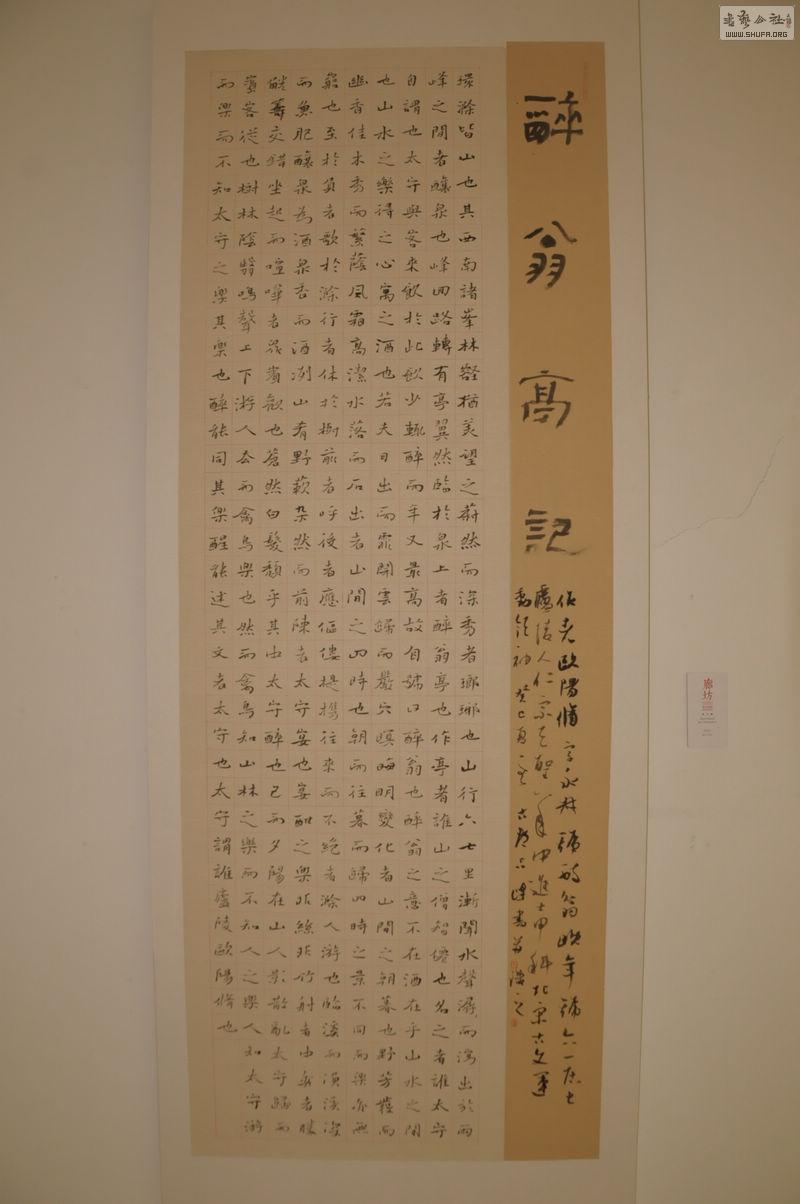 醉翁亭記
作者歐陽脩字永叔號醉翁晚年號六一居士
廬陵人仁宗天聖八年中進士甲科北宋古文運
動領袖癸巳
環滁皆山也其西南諸峯林壑猶美望之蔚然而深秀者瑯琊也山行六七里漸聞水聲潺而瀉出於兩
峰之間者釀泉也峰回路轉有亭翼然臨於泉上者醉翁亭也作亭者誰山之僧智僊也名之者誰太守
自謂也太守與客來飲於此飲少輒醉而年又最高故自號曰醉翁也醉翁之意不在酒在乎山水之間
也山水之樂得之心寓之酒也若夫日出而霏開雲歸而巖穴暝晦明變化者山間之朝暮也野芳發而
幽香佳木秀而繁蔭風霜高潔水落而石出者山間之四時也朝而往暮而歸四時之景不同而樂亦無
窮也至於負者歌於滁行者休於樹前者呼後者應傴僂提攜往來而不絕者滁人游也臨溪而漁溪深
而魚肥釀泉為酒泉香而酒冽山肴野蔌杂然而前陳者太守宴也宴酣之樂非絲非竹射者中弈者勝
觥籌交錯坐起而喧嘩者眾賓歡也蒼然白髮頹乎其中太守醉也已而夕陽在山人影散亂太守歸而
賓客從也樹林陰翳鳴聲上下游人去而禽鳥樂也然而禽鳥知山林之樂而不知人之樂人知太守游
而樂而不知太守之樂其樂也醉能同其樂醒能述其文者太守也太守謂誰廬陵歐陽脩也
廊坊
書藝公社
WWW.SHUFA.ORG